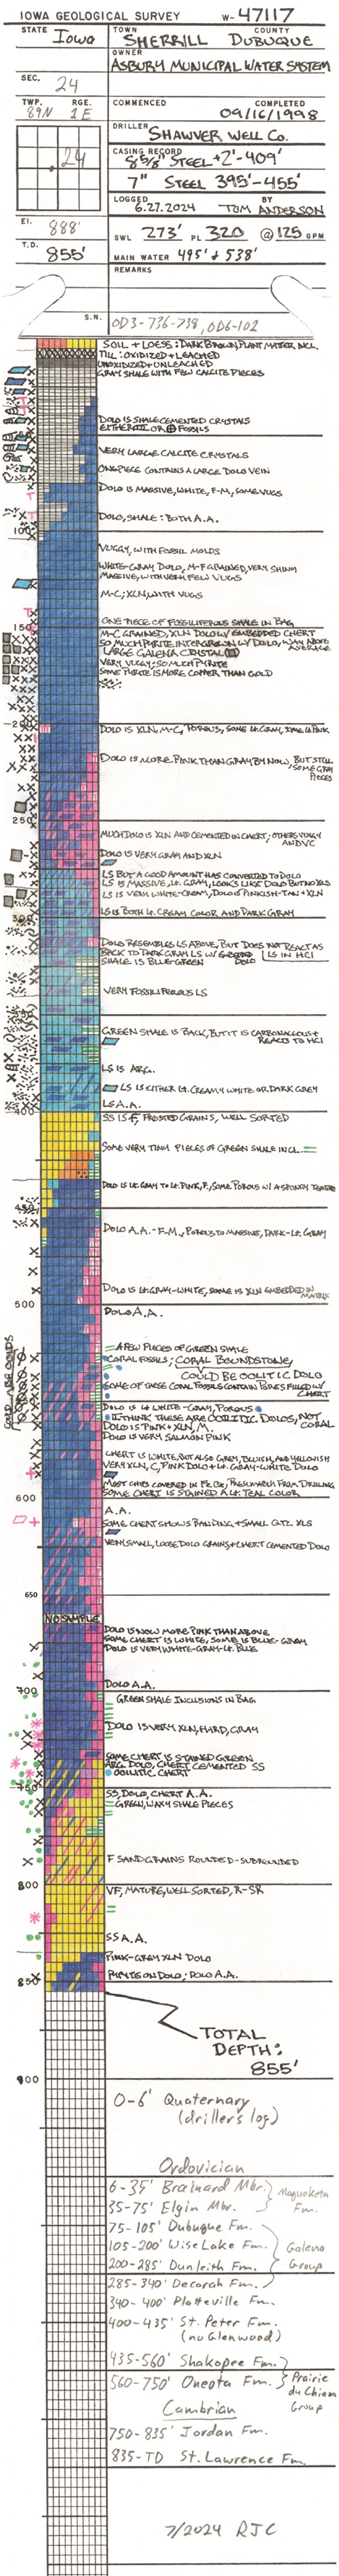 IOWA GEOLOGICAL SURVEY W- 47117
STATE Iowa TOWN SHERRILL COUNTY DUBUQUE
OWNER
ASBURY MUNICIPAL WATER SYSTEM
SEC. 24
TWP. 89N RGE. 1E
COMMENCED COMPLETED 09/16/1998
DRILLER SHAWVER WELL CO.
CASING RECORD 8 5/8" STEEL +2'-409'
7" STEEL 395'-455'
.24
LOGGED 6.27.2024 BY TOM ANDERSON
El. 888'
SWL 273' PL 320 @ 125 GPM
T.D. 855'
MAIN WATER 495' & 538'
REMARKS
S.N. OD3-736-738, OD6-102
SOIL + LOESS: DARK BROWN, PLANT MATTER INCL.
TILL: OXIDIZED + LEACHED
UNOXIDIZED + UNLEACHED
GRAY SHALE WITH FEW CALCITE PIECES
DOLO IS SHALE CEMENTED CRYSTALS
EITHER OR FOSSILS
VERY LARGE CALCITE CRYSTALS
ONE PIECE CONTAINS A LARGE DOLO VEIN
DOLO IS MASSIVE, WHITE, F-M, SOME VUGS
DOLO, SHALE: BOTH A.A.
100
VUGGY, WITH FOSSIL MOLDS
WHITE-GRAY DOLO, M-F GRAINED, VERY SHINY
MASSIVE, WITH VERY FEW VUGS
M-C; XLN, WITH VUGS
ONE PIECE OF FOSSILIFEROUS SHALE IN BAG
150
M-C GRAINED, XLN DOLO W/ EMBEDDED CHERT
SO MUCH PYRITE INTERGROWN W/ DOLO, WAY ABOVE AVERAGE
LARGE GALENA CRYSTAL
VERY VUGGY; SO MUCH PYRITE
SOME PYRITE IS MORE COPPER THAN GOLD
200
DOLO IS XLN, M-C, POROUS, SOME LT. GRAY, SOME LT. PINK
DOLO IS MORE PINK THAN GRAY BY NOW, BUT STILL SOME GRAY PIECES
250
MUCH DOLO IS XLN AND CEMENTED IN CHERT; OTHERS VUGGY AND VC
DOLO IS VERY GRAY AND XLN
LS BUT A GOOD AMOUNT HAS CONVERTED TO DOLO
LS IS MASSIVE, LT. GRAY, LOOKS LIKE DOLO BUT NO XLS
LS IS VERY WHITE-CREAM, DOLO IS PINKISH-TAN + XLN
300
LS IS BOTH LT. CREAM COLOR AND DARK GRAY
DOLO RESEMBLES LS ABOVE, BUT DOES NOT REACT AS LS IN HCl
BACK TO DARK GRAY LS W/ DOLO
SHALE IS BLUE-GREEN
VERY FOSSILIFEROUS LS
350
GREEN SHALE IS BACK, BUT IT IS CARBONACEOUS + REACTS TO HCl
LS IS ARG.
LS IS EITHER LT. CREAMY WHITE OR DARK GREY
LS A.A.
400
SS IS F, FROSTED GRAINS, WELL SORTED
SOME VERY TINY PIECES OF GREEN SHALE INCL.
DOLO IS LT GRAY TO LT. PINK, F, SOME POROUS W/ A SPONGY TEXTURE
450
DOLO A.A. - F-M., POROUS TO MASSIVE, DARK-LT. GRAY
DOLO IS LT. GRAY-WHITE, SOME IS XLN EMBEDDED IN MATRIX
500
DOLO A.A.
A FEW PIECES OF GREEN SHALE
CORAL FOSSILS; CORAL BOUNDSTONE,
COULD BE OOLITIC DOLO
SOME OF THESE CORAL FOSSILS CONTAIN PORES FILLED W/ CHERT
DOLO IS LT WHITE-GRAY, POROUS
I THINK THESE ARE OOLITIC DOLOS, NOT CORAL
DOLO IS PINK + XLN, M.
DOLO IS VERY SALMON PINK
CHERT IS WHITE, BUT ALSO GREY, BLUISH, AND YELLOWISH
VERY XLN, C, PINK DOLO + LT. GRAY-WHITE DOLO
MOST CHIPS COVERED IN FE OX, PRESUMABLY FROM DRILLING
SOME CHERT IS STAINED A LT. TEAL COLOR
600
A.A.
SOME CHERT SHOWS BANDING + SMALL QTZ XLS
VERY SMALL, LOOSE DOLO GRAINS + CHERT CEMENTED DOLO
650
NO SAMPLE
DOLO IS NOW MORE PINK THAN ABOVE
SOME CHERT IS WHITE, SOME IS BLUE-GRAY
DOLO IS VERY WHITE-GRAY-LT. BLUE
700
DOLO A.A.
GREEN SHALE INCLUSIONS IN BAG
DOLO IS VERY XLN, HARD, GRAY
SOME CHERT IS STAINED GREEN
ARG. DOLO, CHERT CEMENTED SS
OOLITIC CHERT
750
SS, DOLO, CHERT A.A.
GREEN, WAXY SHALE PIECES
F SAND GRAINS ROUNDED-SUBROUNDED
800
VF, MATURE, WELL SORTED, R-SR
SS A.A.
PINK-GRAY XLN DOLO
850
PYRITE ON DOLO; DOLO A.A.
TOTAL
DEPTH:
855'
900
0-6' Quaternary
(driller's log)
Ordovician
6-35' Brainard Mbr.
35-75' Elgin Mbr.
Maquoketa Fm.
75-105' Dubuque Fm.
105-200' Wise Lake Fm.
200-285' Dunleith Fm.
Galena Group
285-340' Decorah Fm.
340-400' Platteville Fm.
400-435' St. Peter Fm.
(no Glenwood)
435-560' Shakopee Fm.
560-750' Oneota Fm.
Prairie du Chien Group
Cambrian
750-835' Jordan Fm.
835-TD St. Lawrence Fm.
7/2024 RJC